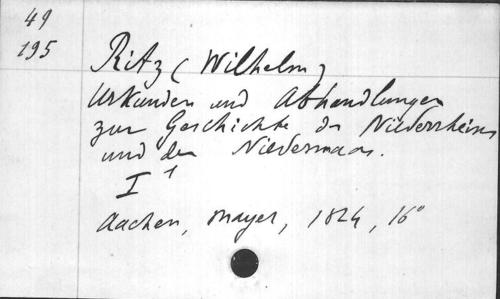 49
195
Ritz (Wilhelm)
Urkunden und Abhandlungen
zur Geschichte des Niederrheins
und der Niedermaas.
I 1
Aachen, Mayer, 1824, 16°